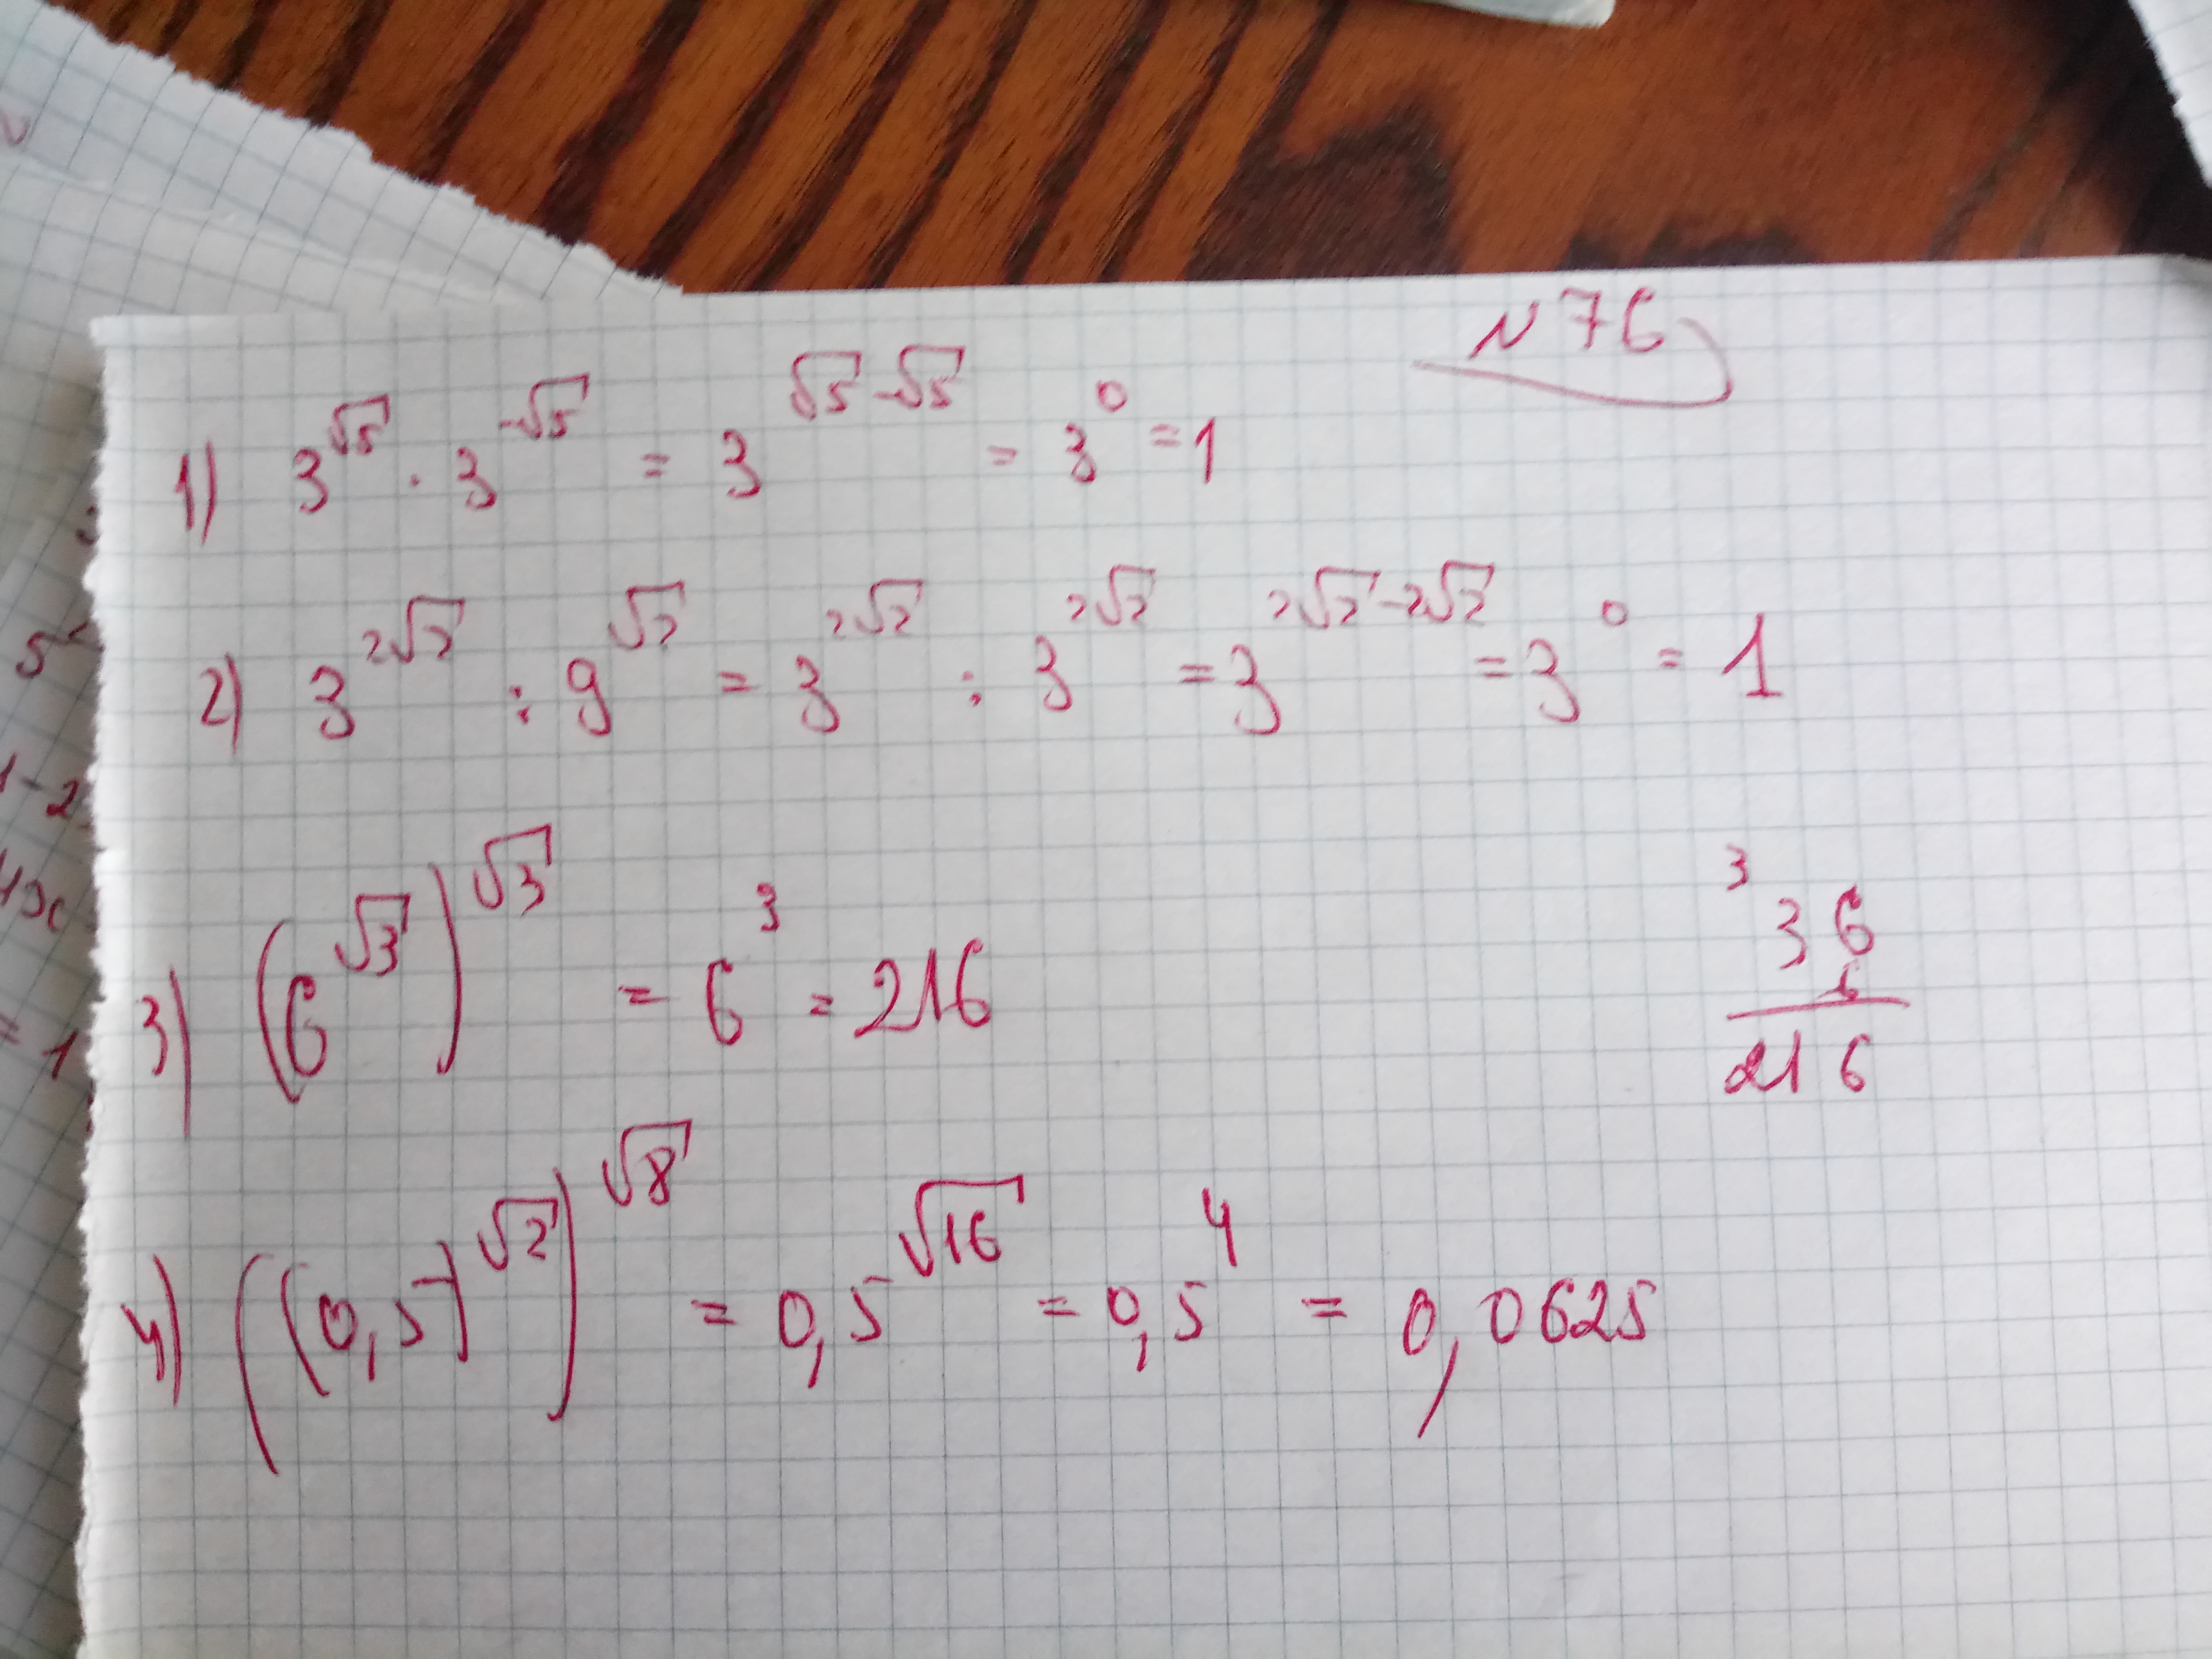 N 76
1) 3^√5 · 3^-√5 = 3^√5-√5 = 3^0 = 1
2) 3^2√2 : 9^√2 = 3^2√2 : 3^2√2 = 3^2√2-2√2 = 3^0 = 1
3) (6^√3)^√3 = 6^3 = 216
3
36
6
216
4) ((0,5)^√2)^√8 = 0,5^√16 = 0,5^4 = 0,0625
5
1-2
= 1